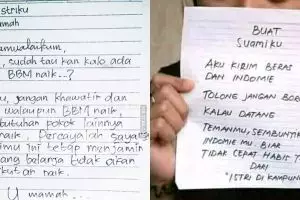 striku
mah
amualaikum,
, sudah tau kan kalo ada
BBM naik..?
u, jangan khawatir dan
walaupun BBM naik,
butuhan pokok lainnya
naik, Percayalah sayang
imu ini tetap menjamin
ang belanja tidak akan
kutan naik.
U mamah...
BUAT
SUAMIKU
AKU KIRIM BERAS
DAN INDOMIE
TOLONG JANGAN BOR
KALAU DATANG
TEMANMU, SEMBUNYI
INDOMIE MU BIAR
TIDAK CEPAT HABIS T
DARI
"ISTRI DI KAMPUN